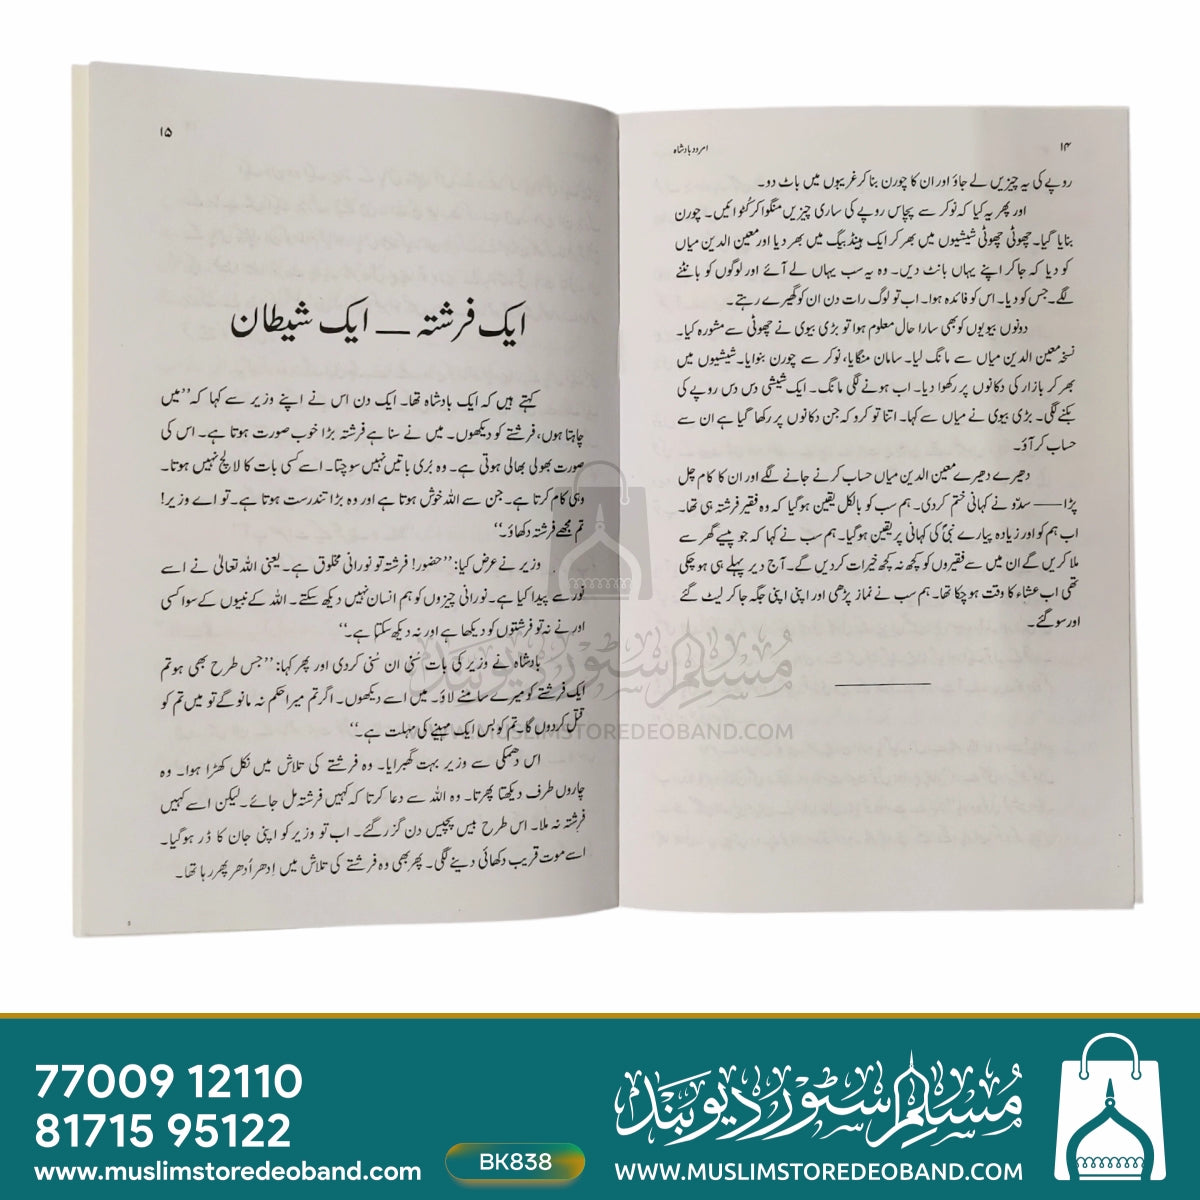 ۱۴
امرود بادشاہ
روپے کی یہ چیزیں لے جاؤ اور ان کا چورن بنا کر غریبوں میں باٹ دو۔
اور پھر یہ کیا کہ نوکر سے پچاس روپے کی ساری چیزیں منگوا کر کٹوائیں۔ چورن
بنایا گیا۔ چھوٹی چھوٹی شیشیوں میں بھر کر ایک ہینڈ بیگ میں بھر دیا اور معین الدین میاں
کو دیا کہ جا کر اپنے یہاں بانٹ دیں۔ وہ یہ سب یہاں لے آئے اور لوگوں کو بانٹنے
لگے۔ جس کو دیا۔ اس کو فائدہ ہوا۔ اب تو لوگ رات دن ان کو گھیرے رہتے۔
دونوں بیویوں کو بھی سارا حال معلوم ہوا تو بڑی بیوی نے چھوٹی سے مشورہ کیا۔
نسخہ معین الدین میاں سے مانگ لیا۔ سامان منگایا، نوکر سے چورن بنوایا۔ شیشیوں میں
بھر کر بازار کی دکانوں پر رکھوا دیا۔ اب ہونے لگی مانگ۔ ایک شیشی دس دس روپے کی
بکنے لگی۔ بڑی بیوی نے میاں سے کہا۔ اتنا تو کرو کہ جن دکانوں پر رکھا گیا ہے ان سے
حساب کر آؤ۔
دھیرے دھیرے معین الدین میاں حساب کرنے جانے لگے اور ان کا کام چل
پڑا — سدّو نے کہانی ختم کردی۔ ہم سب کو بالکل یقین ہوگیا کہ وہ فقیر فرشتہ ہی تھا۔
اب ہم کو اور زیادہ پیارے نبیؐ کی کہانی پر یقین ہوگیا۔ ہم سب نے کہا کہ جو پیسے گھر سے
ملا کریں گے ان میں سے فقیروں کو کچھ نہ کچھ خیرات کردیں گے۔ آج دیر پہلے ہی ہو چکی
تھی اب عشاء کا وقت ہو چکا تھا۔ ہم سب نے نماز پڑھی اور اپنی اپنی جگہ جا کر لیٹ گئے
اور سو گئے۔
۱۵
ایک فرشتہ — ایک شیطان
کہتے ہیں کہ ایک بادشاہ تھا۔ ایک دن اس نے اپنے وزیر سے کہا کہ ’’میں
چاہتا ہوں، فرشتے کو دیکھوں۔ میں نے سنا ہے فرشتہ بڑا خوب صورت ہوتا ہے۔ اس کی
صورت بھولی بھالی ہوتی ہے۔ وہ بُری باتیں نہیں سوچتا۔ اسے کسی بات کا لالچ نہیں ہوتا۔
وہی کام کرتا ہے۔ جن سے اللہ خوش ہوتا ہے اور وہ بڑا تندرست ہوتا ہے۔ تو اے وزیر!
تم مجھے فرشتہ دکھاؤ۔‘‘
وزیر نے عرض کیا: ’’حضور! فرشتہ تو نورانی مخلوق ہے۔ یعنی اللہ تعالیٰ نے اسے
نور سے پیدا کیا ہے۔ نورانی چیزوں کو ہم انسان نہیں دیکھ سکتے۔ اللہ کے نبیوں کے سوا کسی
اور نے نہ تو فرشتوں کو دیکھا ہے اور نہ دیکھ سکتا ہے۔‘‘
بادشاہ نے وزیر کی بات سُنی ان سُنی کردی اور پھر کہا: ’’جس طرح بھی ہو تم
ایک فرشتے کو میرے سامنے لاؤ۔ میں اسے دیکھوں۔ اگر تم میرا حکم نہ مانوگے تو میں تم کو
قتل کردوں گا۔ تم کو بس ایک مہینے کی مہلت ہے۔‘‘
اس دھمکی سے وزیر بہت گھبرایا۔ وہ فرشتے کی تلاش میں نکل کھڑا ہوا۔ وہ
چاروں طرف دیکھتا پھرتا۔ وہ اللہ سے دعا کرتا کہ کہیں فرشتہ مل جائے۔ لیکن اسے کہیں
فرشتہ نہ ملا۔ اس طرح بیس پچیس دن گزر گئے۔ اب تو وزیر کو اپنی جان کا ڈر ہوگیا۔
اسے موت قریب دکھائی دینے لگی۔ پھر بھی وہ فرشتے کی تلاش میں اِدھر اُدھر پھر رہا تھا۔
مسلم سٹور دیوبند
WWW.MUSLIMSTOREDEOBAND.COM
77009 12110
81715 95122
www.muslimstoredeoband.com
BK838
مسلم سٹور دیوبند
WWW.MUSLIMSTOREDEOBAND.COM